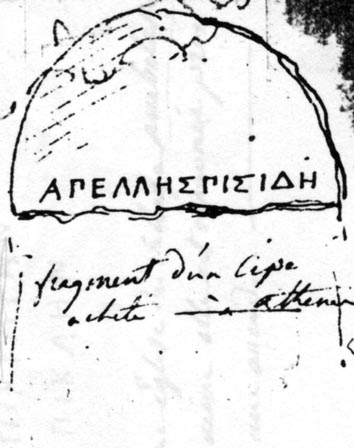 ΑΠΕΛΛΗΣΠΙΣΙΔΗ
fragment d'un Cipe
acheté à athenes